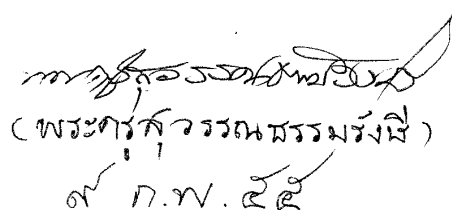 (พระครูสุวรรณธรรมรังษี)
๙ ก.พ. ๕๕